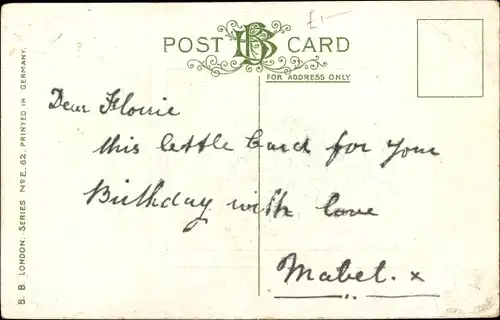 £1-
POST BB CARD
FOR ADDRESS ONLY
Dear Florrie
this little Card for your
Birthday with love
Mabel. x
B. B. LONDON. SERIES No E. 62. PRINTED IN GERMANY.